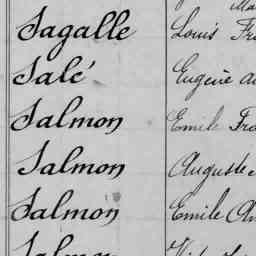 Sagalle Louis
Salé Eugène
Salmon Emile
Salmon Auguste
Salmon Emile
Salmon